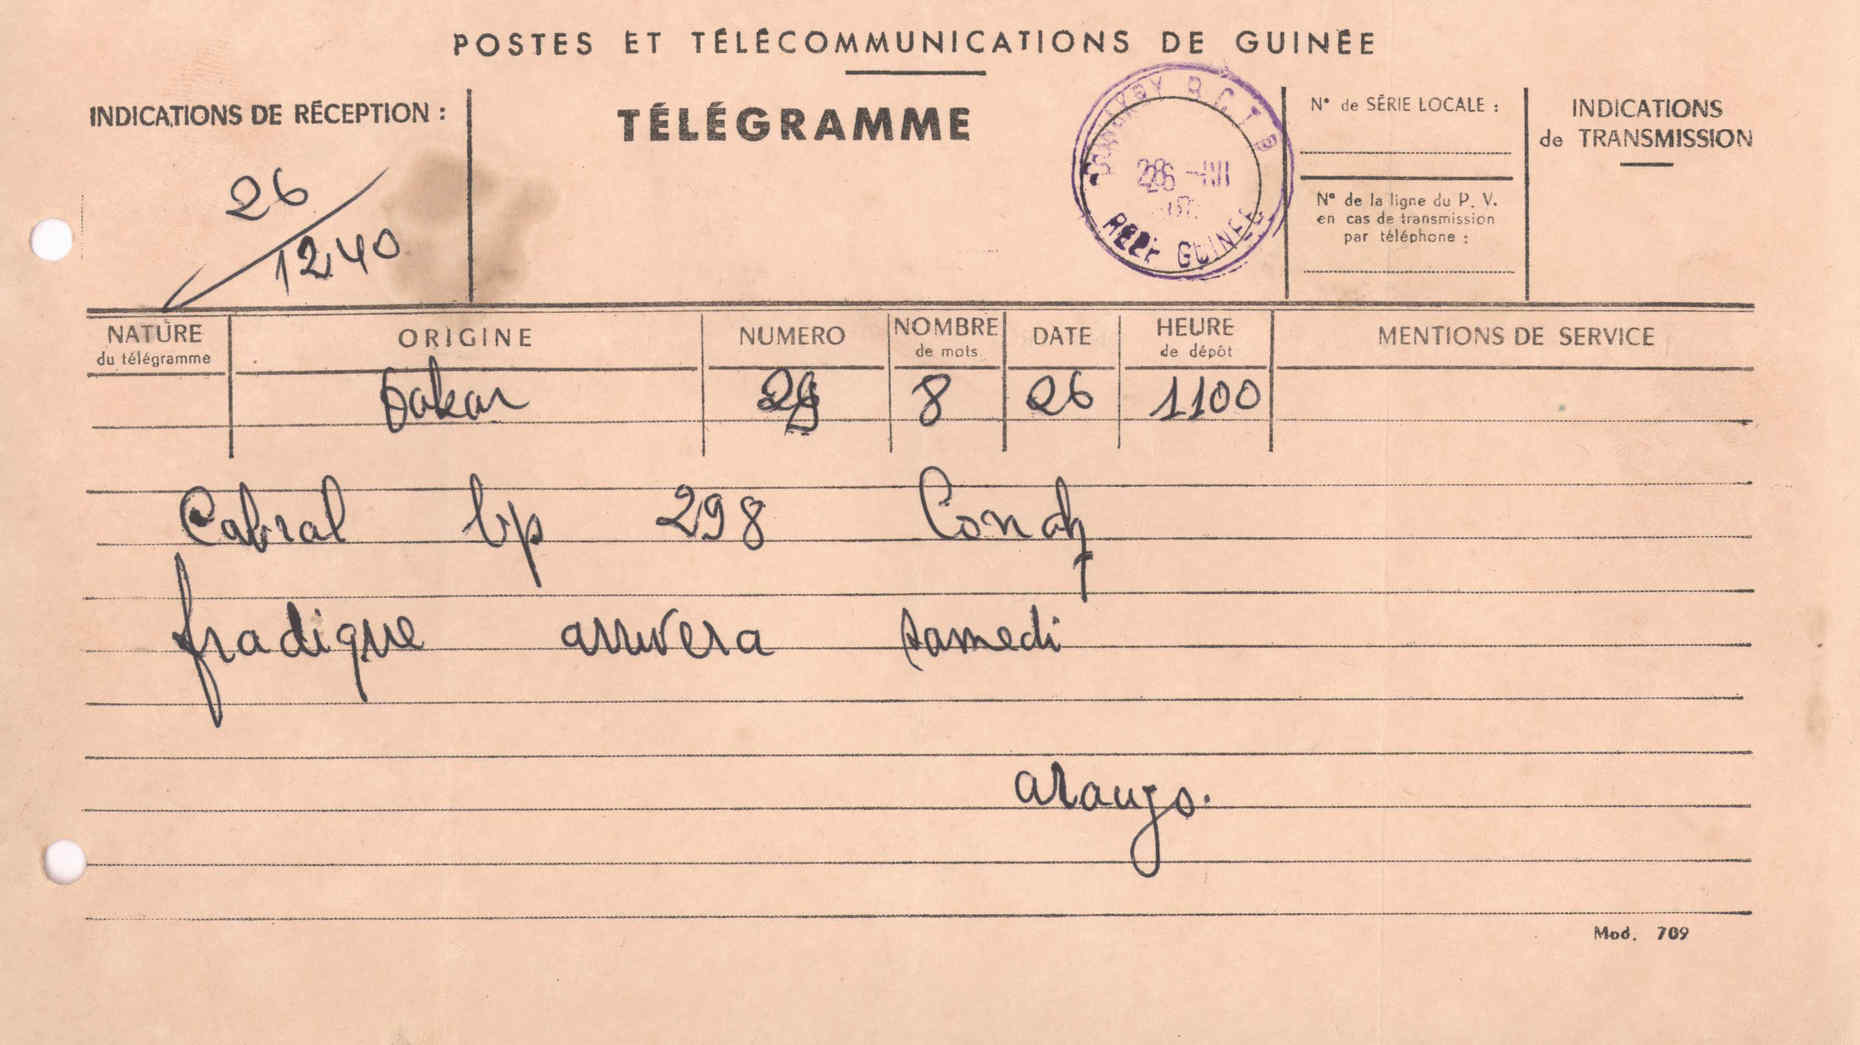 POSTES ET TÉLÉCOMMUNICATIONS DE GUINÉE
INDICATIONS DE RÉCEPTION :
26
1240
TÉLÉGRAMME
CONAKRY R.C.T.B
REP. GUINEE
N° de SÉRIE LOCALE :
N° de la ligne du P. V.
en cas de transmission
par téléphone :
INDICATIONS
de TRANSMISSION
NATURE
du télégramme
ORIGINE
NUMERO
NOMBRE
de mots
DATE
HEURE
de dépôt
MENTIONS DE SERVICE
Dakar 8 26 1100
Cabral bp 298 Conaky
fradique arrivera samedi
araujo.
Mod. 709